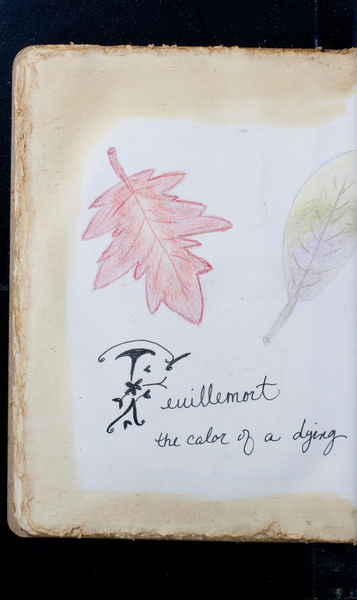 Feuillemort
the color of a dying